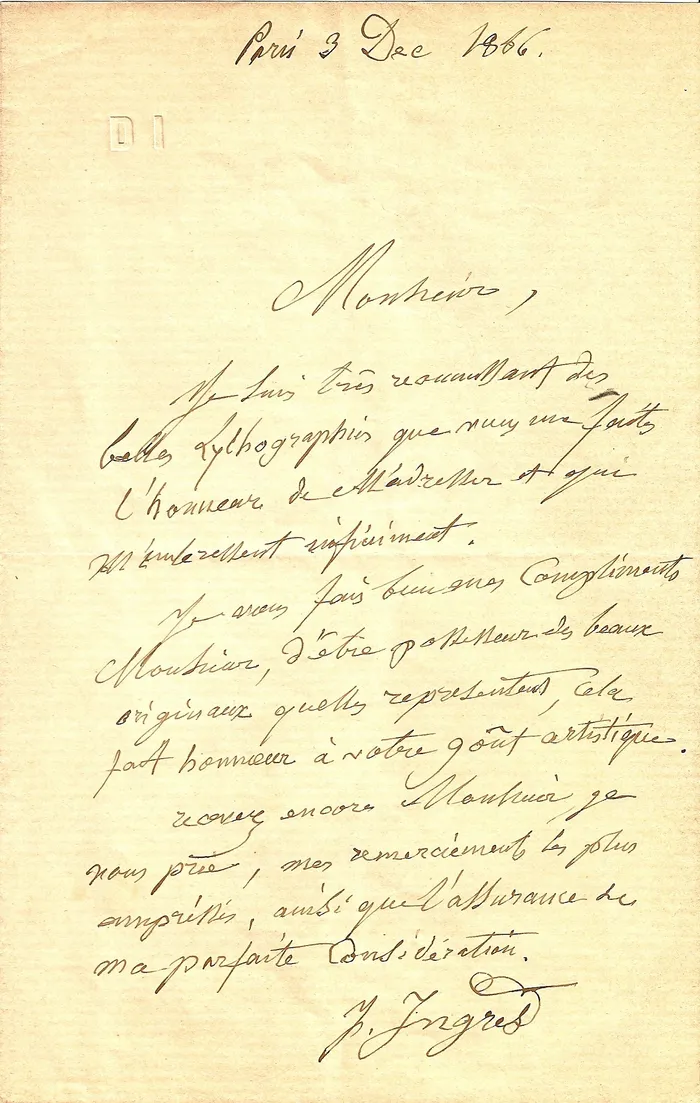 Paris 3 Dec 1866.
DI
Monsieur,
Je suis très reconnaissant des
belles Lythographies que vous me faites
l'honneur de M'adresser et qui
M'interessent infiniment.
Je vous fais bien mes Compliments
Monsieur, d'être possesseur des beaux
originaux quelles representent, Cela
fait honneur à votre goût artistique.
recevez encore Monsieur, je
vous prie, mes remerciements les plus
empréssés, ainsi que l'assurance de
ma parfaite Considération.
J. Ingres